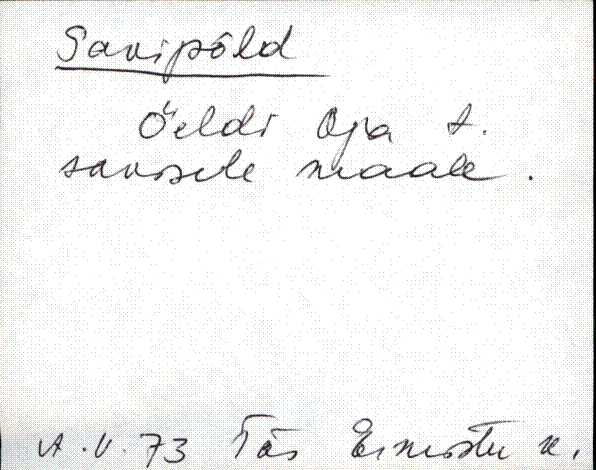 Savipõld
Öeldi Oja t.
savisele maale.
A.V. 73 Tõs Ermistu k.